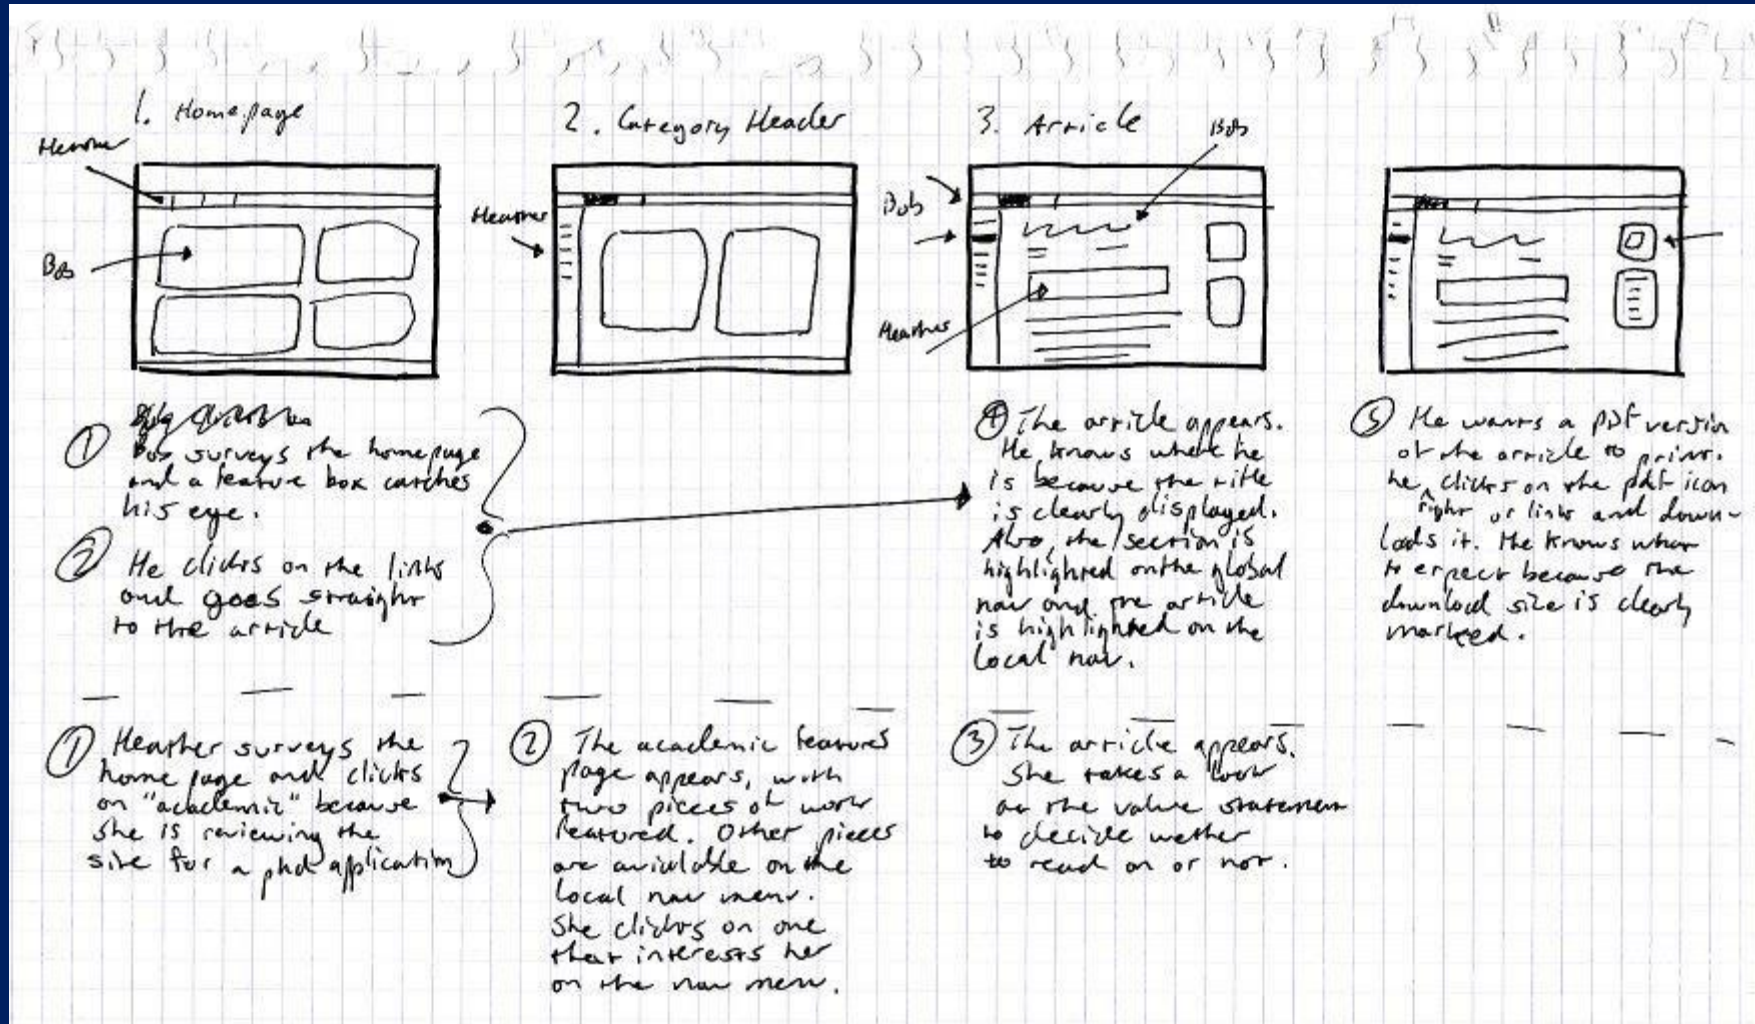 1. Homepage
2. Category Header
3. Article
Heather
Bob
Heather
Bob
Bob
Heather
①
Bob surveys the homepage
and a feature box catches
his eye.
② He clicks on the links
and goes straight
to the article
④ The article appears.
He knows where he
is because the title
is clearly displayed.
Also, the section is
highlighted on the global
nav and the article
is highlighted on the
local nav.
⑤ He wants a pdf version
of the article to print.
he clicks on the pdf icon
right or link and down-
loads it. He knows what
to expect because the
download size is clearly
marked.
① Heather surveys the
home page and clicks
on "academic" because
she is reviewing the
site for a phd application
② The academic features
page appears, with
two pieces of work
featured. Other pieces
are avialable on the
local nav menu.
She clicks on one
that interests her
on the nav menu.
③ The article appears.
She takes a look
at the value statement
to decide wether
to read on or not.